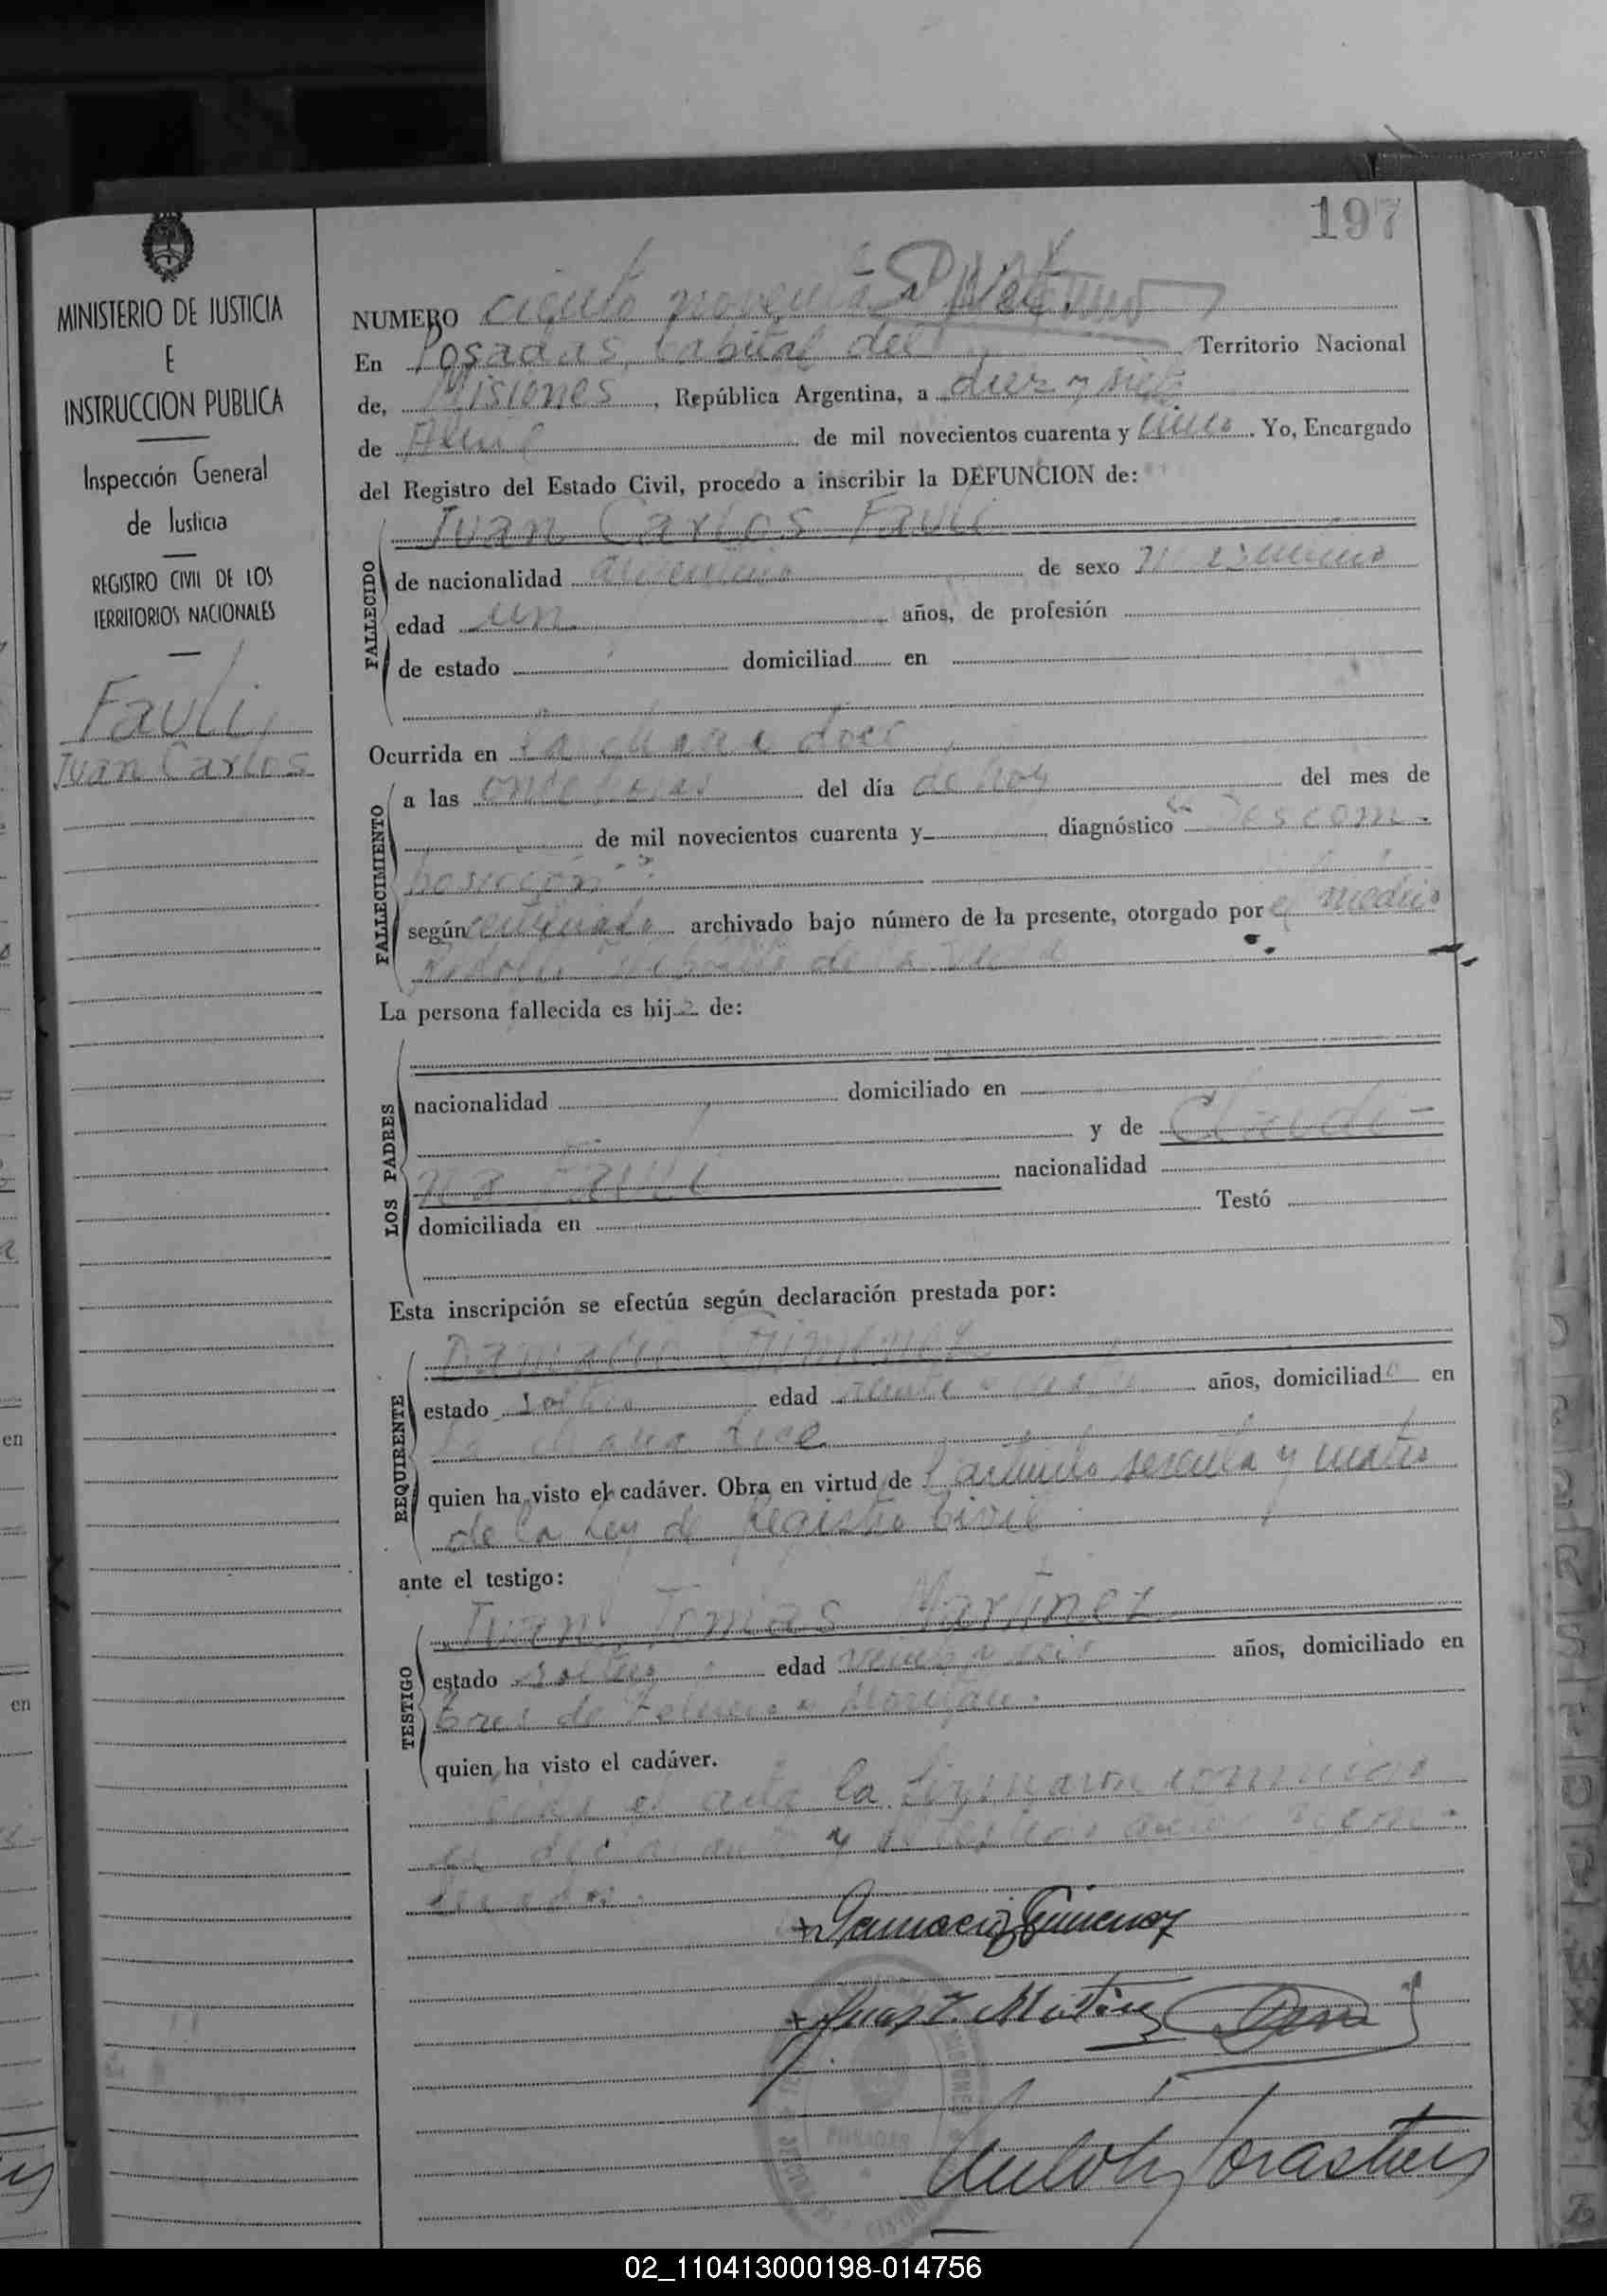 197
MINISTERIO DE JUSTICIA
E
INSTRUCCION PUBLICA
Inspección General
de Justicia
REGISTRO CIVIL DE LOS
TERRITORIOS NACIONALES
Fauli,
Juan Carlos
NUMERO ciento noventa y siete
En Posadas, capital del Territorio Nacional
de, Misiones, República Argentina, a diez y siete
de Abril de mil novecientos cuarenta y cinco. Yo, Encargado
del Registro del Estado Civil, procedo a inscribir la DEFUNCION de:
FALLECIDO
Juan Carlos Fauli
de nacionalidad argentino de sexo masculino
edad un años, de profesión
de estado domiciliad en
Ocurrida en la Chacra doce
FALLECIMIENTO
a las once horas del día de hoy del mes de
de mil novecientos cuarenta y diagnóstico "Descom-
posición"
según certificado archivado bajo número de la presente, otorgado por el médico
de la
La persona fallecida es hijo de:
LOS PADRES
nacionalidad domiciliado en
y de Claudi-
na Fauli nacionalidad
domiciliada en Testó
Esta inscripción se efectúa según declaración prestada por:
REQUIRENTE
Damacio Gimenez
estado soltero edad años, domiciliado en
la chacra doce
quien ha visto el cadáver. Obra en virtud de l artículo sesenta y cuatro
de la Ley de Registro Civil
ante el testigo:
TESTIGO
Juan Tomas Martinez
estado soltero edad veinte y seis años, domiciliado en
Tres de Febrero y
quien ha visto el cadáver.
el acta la firmaron conmigo
el y el testigo
Damacio Gimenez
Juan T. Martinez
POSADAS
MISIONES
02_110413000198-014756